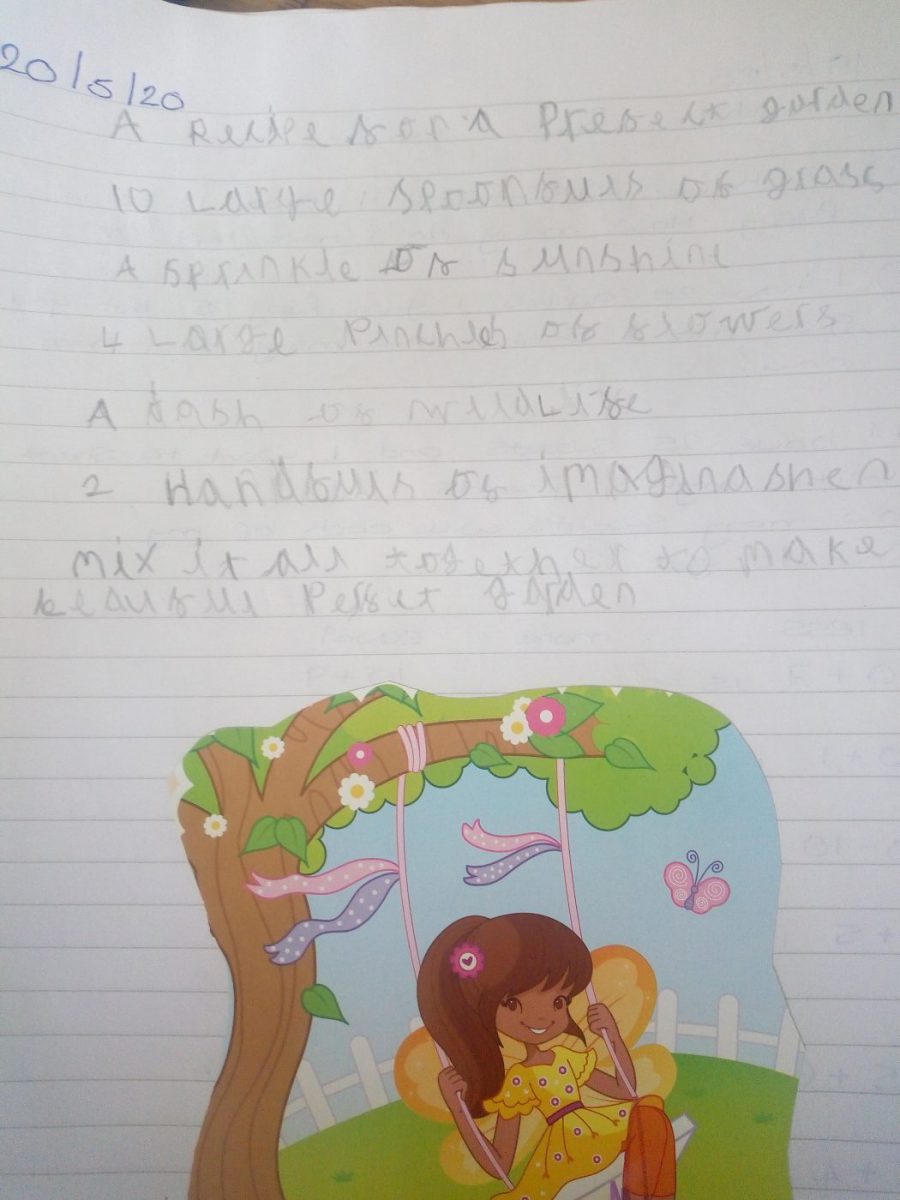 20/5/20
A Recipe for A Presect garden
10 Large spoonfuls of grass
A sprinkle of sunshine
4 Large Pinches of flowers
A dash of wildLife
2 Handfuls of imaginashen
mix it all together to make
beautful Perfect garden